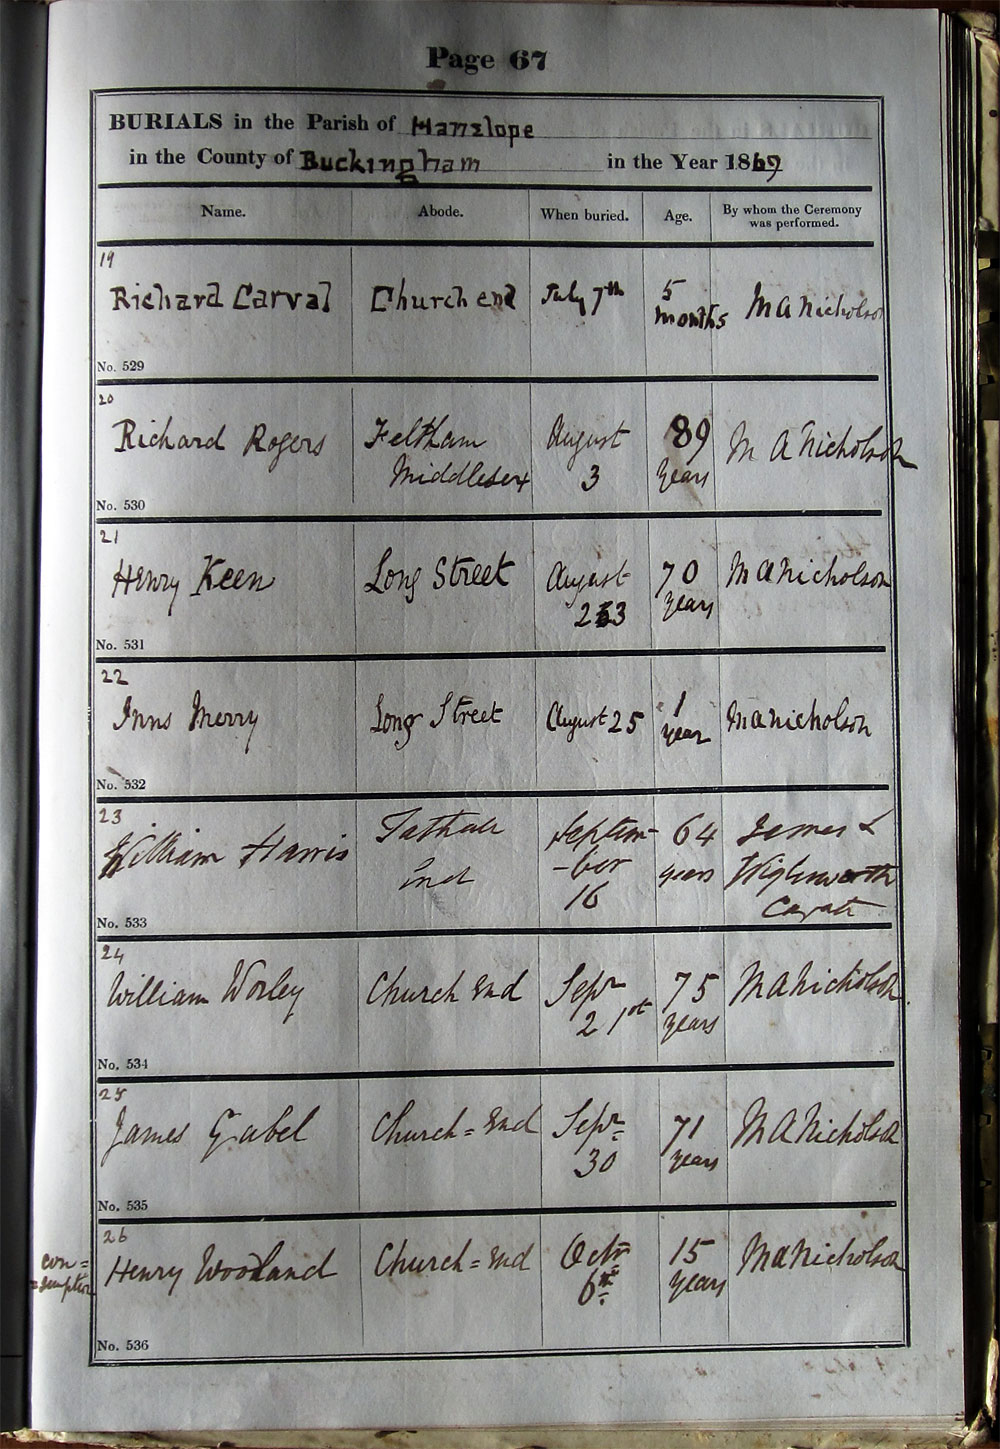 Page 67
BURIALS in the Parish of Hanslope
in the County of Buckingham in the Year 1869
Name. Abode. When buried. Age. By whom the Ceremony
was performed.
19
Richard Carval Church end July 7th 5
months M A Nicholson
No. 529
20
Richard Rogers Feltham August 89 M A Nicholson
Middlesex 3 years
No. 530
21
Henry Keen Long Street August 70 M A Nicholson
23 years
No. 531
22
Inns Merry Long Street August 25 1 M A Nicholson
year
No. 532
23
William Harris Tathall Septem- 64 James
End -ber years Wiglesworth
16 Curate
No. 533
24
William Worley Church End Sepr 75 M A Nicholson
21st years
No. 534
25
James Gabel Church=End Sepr 71 M A Nicholson
30 years
No. 535
26
con=
=sumption
Henry Woodland Church=End Octr 15 M A Nicholson
6th years
No. 536